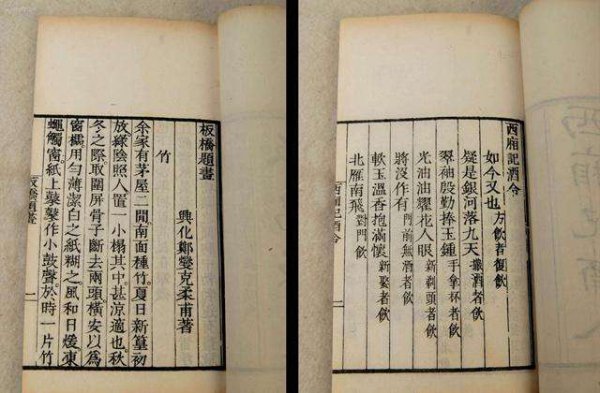 板橋題畫
竹
興化鄭燮克柔甫著
余家有茅屋二間南面種竹夏日新篁初
放綠陰照人置一小榻其中甚涼適也秋
冬之際取圍屏骨子斷去兩頭橫安以為
窗欞用勻薄潔白之紙糊之風和日煖凍
蠅觸窗紙上鼕鼕作小鼓聲於時一片竹
板橋題畫 一
西廂記酒令
如今又也 方飲者復飲
疑是銀河落九天 撒酒者飲
翠袖殷勤捧玉鍾 手拿杯者飲
光油油耀花人眼 新剃頭者飲
將沒作有 門前無酒者飲
軟玉溫香抱滿懷 新娶者飲
北雁南飛 對門飲
西廂記酒令 一